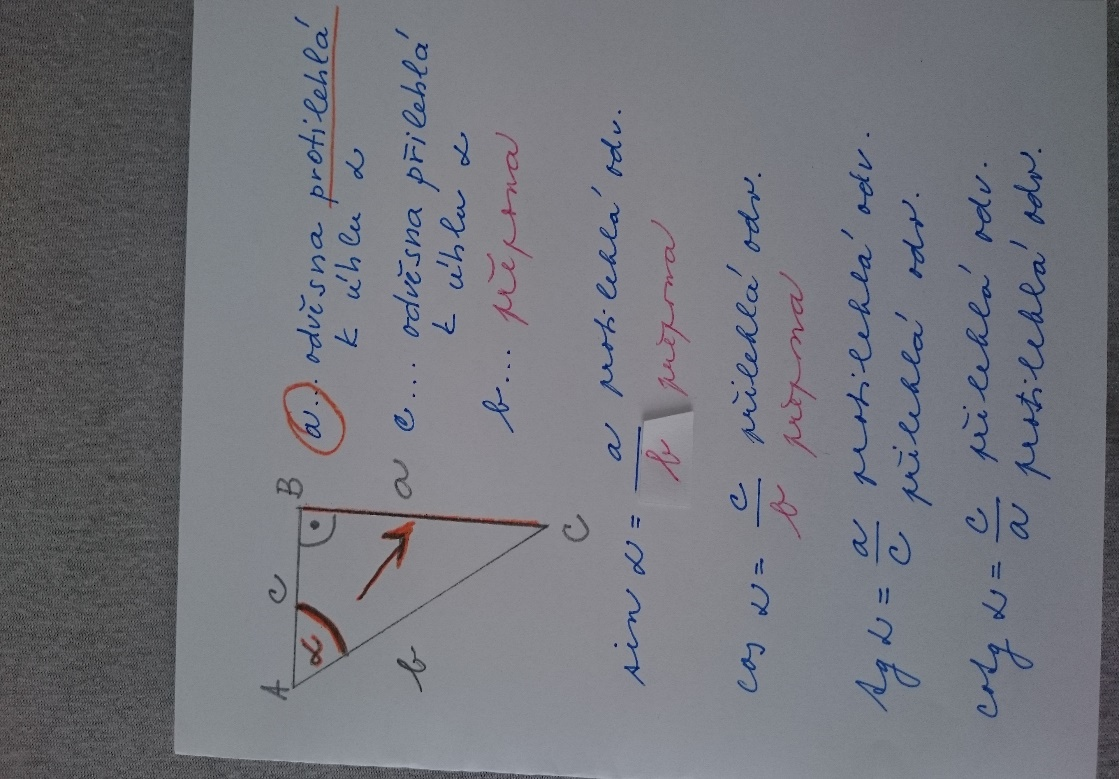 A c B
α
b a
C
a... odvěsna protilehlá
k úhlu α
c... odvěsna přilehlá
k úhlu α
b... přepona
sin α = a/b protilehlá odv.
přepona
cos α = c/b přilehlá odv.
přepona
tg α = a/c protilehlá odv.
přilehlá odv.
cotg α = c/a přilehlá odv.
protilehlá odv.